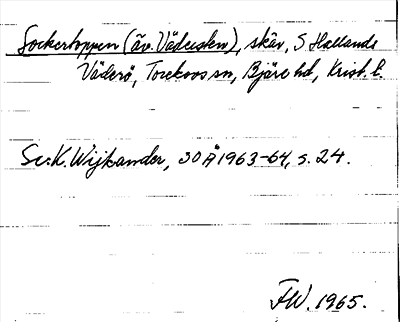 Sockertoppen (äv. Väderskn), skär, S Hallands
Väderö, Torekovs sn, Bjäre hd, Krist. l.
Sv. K. Wijkander, SOÅ 1963-64, s. 24.
FW. 1965.